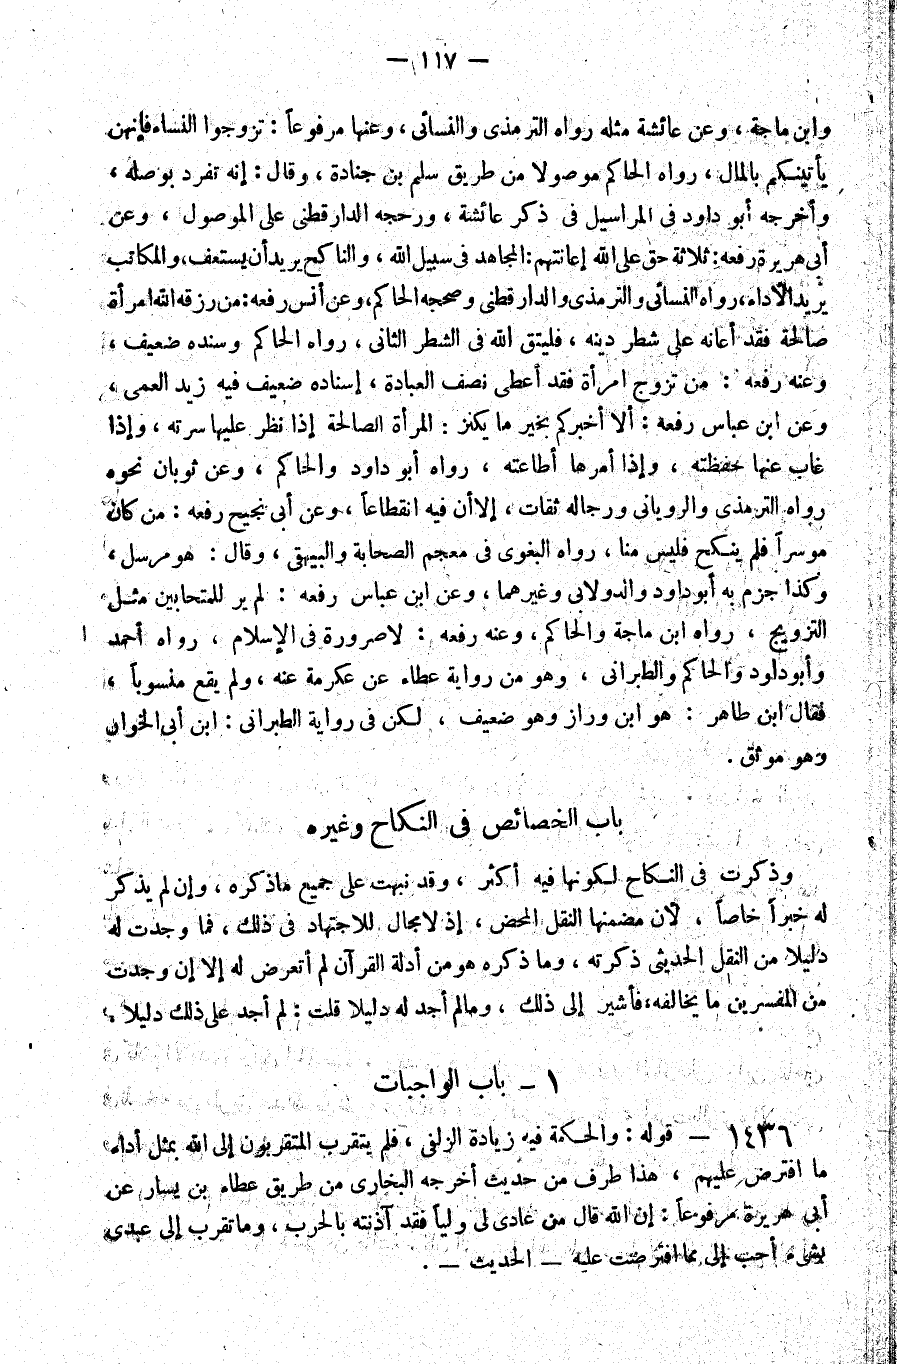 — ١١٧ —
وابن ماجة ، وعن عائشة مثله رواه الترمذى والنسائى ، وعنها مرفوعاً : تزوجوا النساء فإنهن
يأتينكم بالمال ، رواه الحاكم موصولا من طريق سلم بن جنادة ، وقال : إنه تفرد بوصله ،
وأخرجه أبو داود فى المراسيل فى ذكر عائشة ، ورجحه الدارقطنى على الموصول ، وعن
أبى هريرة رفعه : ثلاثة حق على الله إعانتهم : المجاهد فى سبيل الله ، والناكح يريد أن يستعف ، والمكاتب
يريد الأداء ، رواه النسائى والترمذى والدارقطنى وصححه الحاكم ، وعن أنس رفعه : من رزقه الله امرأة
صالحة فقد أعانه على شطر دينه ، فليتق الله فى الشطر الثانى ، رواه الحاكم وسنده ضعيف ،
وعنه رفعه : من تزوج امرأة فقد أعطى نصف العبادة ، إسناده ضعيف فيه زيد العمى ،
وعن ابن عباس رفعه : ألا أخبركم بخير ما يكنز : المرأة الصالحة إذا نظر عليها سرته ، وإذا
غاب عنها حفظته ، وإذا أمرها أطاعته ، رواه أبو داود والحاكم ، وعن ثوبان نحوه
رواه الترمذى والرويانى ورجاله ثقات ، إلا أن فيه انقطاعاً ، وعن أبى نجيح رفعه : من كان
موسراً فلم ينكح فليس منا ، رواه البغوى فى معجم الصحابة والبيهقى ، وقال : هو مرسل ،
وكذا جزم به أبو داود والدولابى وغيرهما ، وعن ابن عباس رفعه : لم ير للمتحابين مثل
التزويج ، رواه ابن ماجة والحاكم ، وعنه رفعه : لا صرورة فى الإسلام ، رواه أحمد
وأبو داود والحاكم والطبرانى ، وهو من رواية عطاء عن عكرمة عنه ، ولم يقع منسوباً ،
فقال ابن طاهر : هو ابن وراز وهو ضعيف ، لكن فى رواية الطبرانى : ابن أبى الخوار
وهو موثق .
باب الخصائص فى النكاح وغيره
وذكرت فى النكاح لكونها فيه أكثر ، وقد نبهت على جميع ماذكره ، وإن لم يذكر
له خبراً خاصاً ، لأن مضمنها النقل المحض ، إذ لا مجال للاجتهاد فى ذلك ، فما وجدت له
دليلا من النقل الحديثى ذكرته ، وما ذكره هو من أدلة القرآن لم أتعرض له إلا إن وجدت
من المفسرين ما يخالفه ، فأشير إلى ذلك ، ومالم أجد له دليلا قلت : لم أجد على ذلك دليلا .
١ — باب الواجبات
١٤٣٦ — قوله : والحكمة فيه زيادة الزلفى ، فلم يتقرب المتقربون إلى الله بمثل أداء
ما افترض عليهم ، هذا طرف من حديث أخرجه البخارى من طريق عطاء بن يسار عن
أبي هريرة مرفوعاً : إن الله قال من عادى لى ولياً فقد آذنته بالحرب ، وما تقرب إلى عبدى
بشىء أحب إلى مما افترضت عليه — الحديث — .